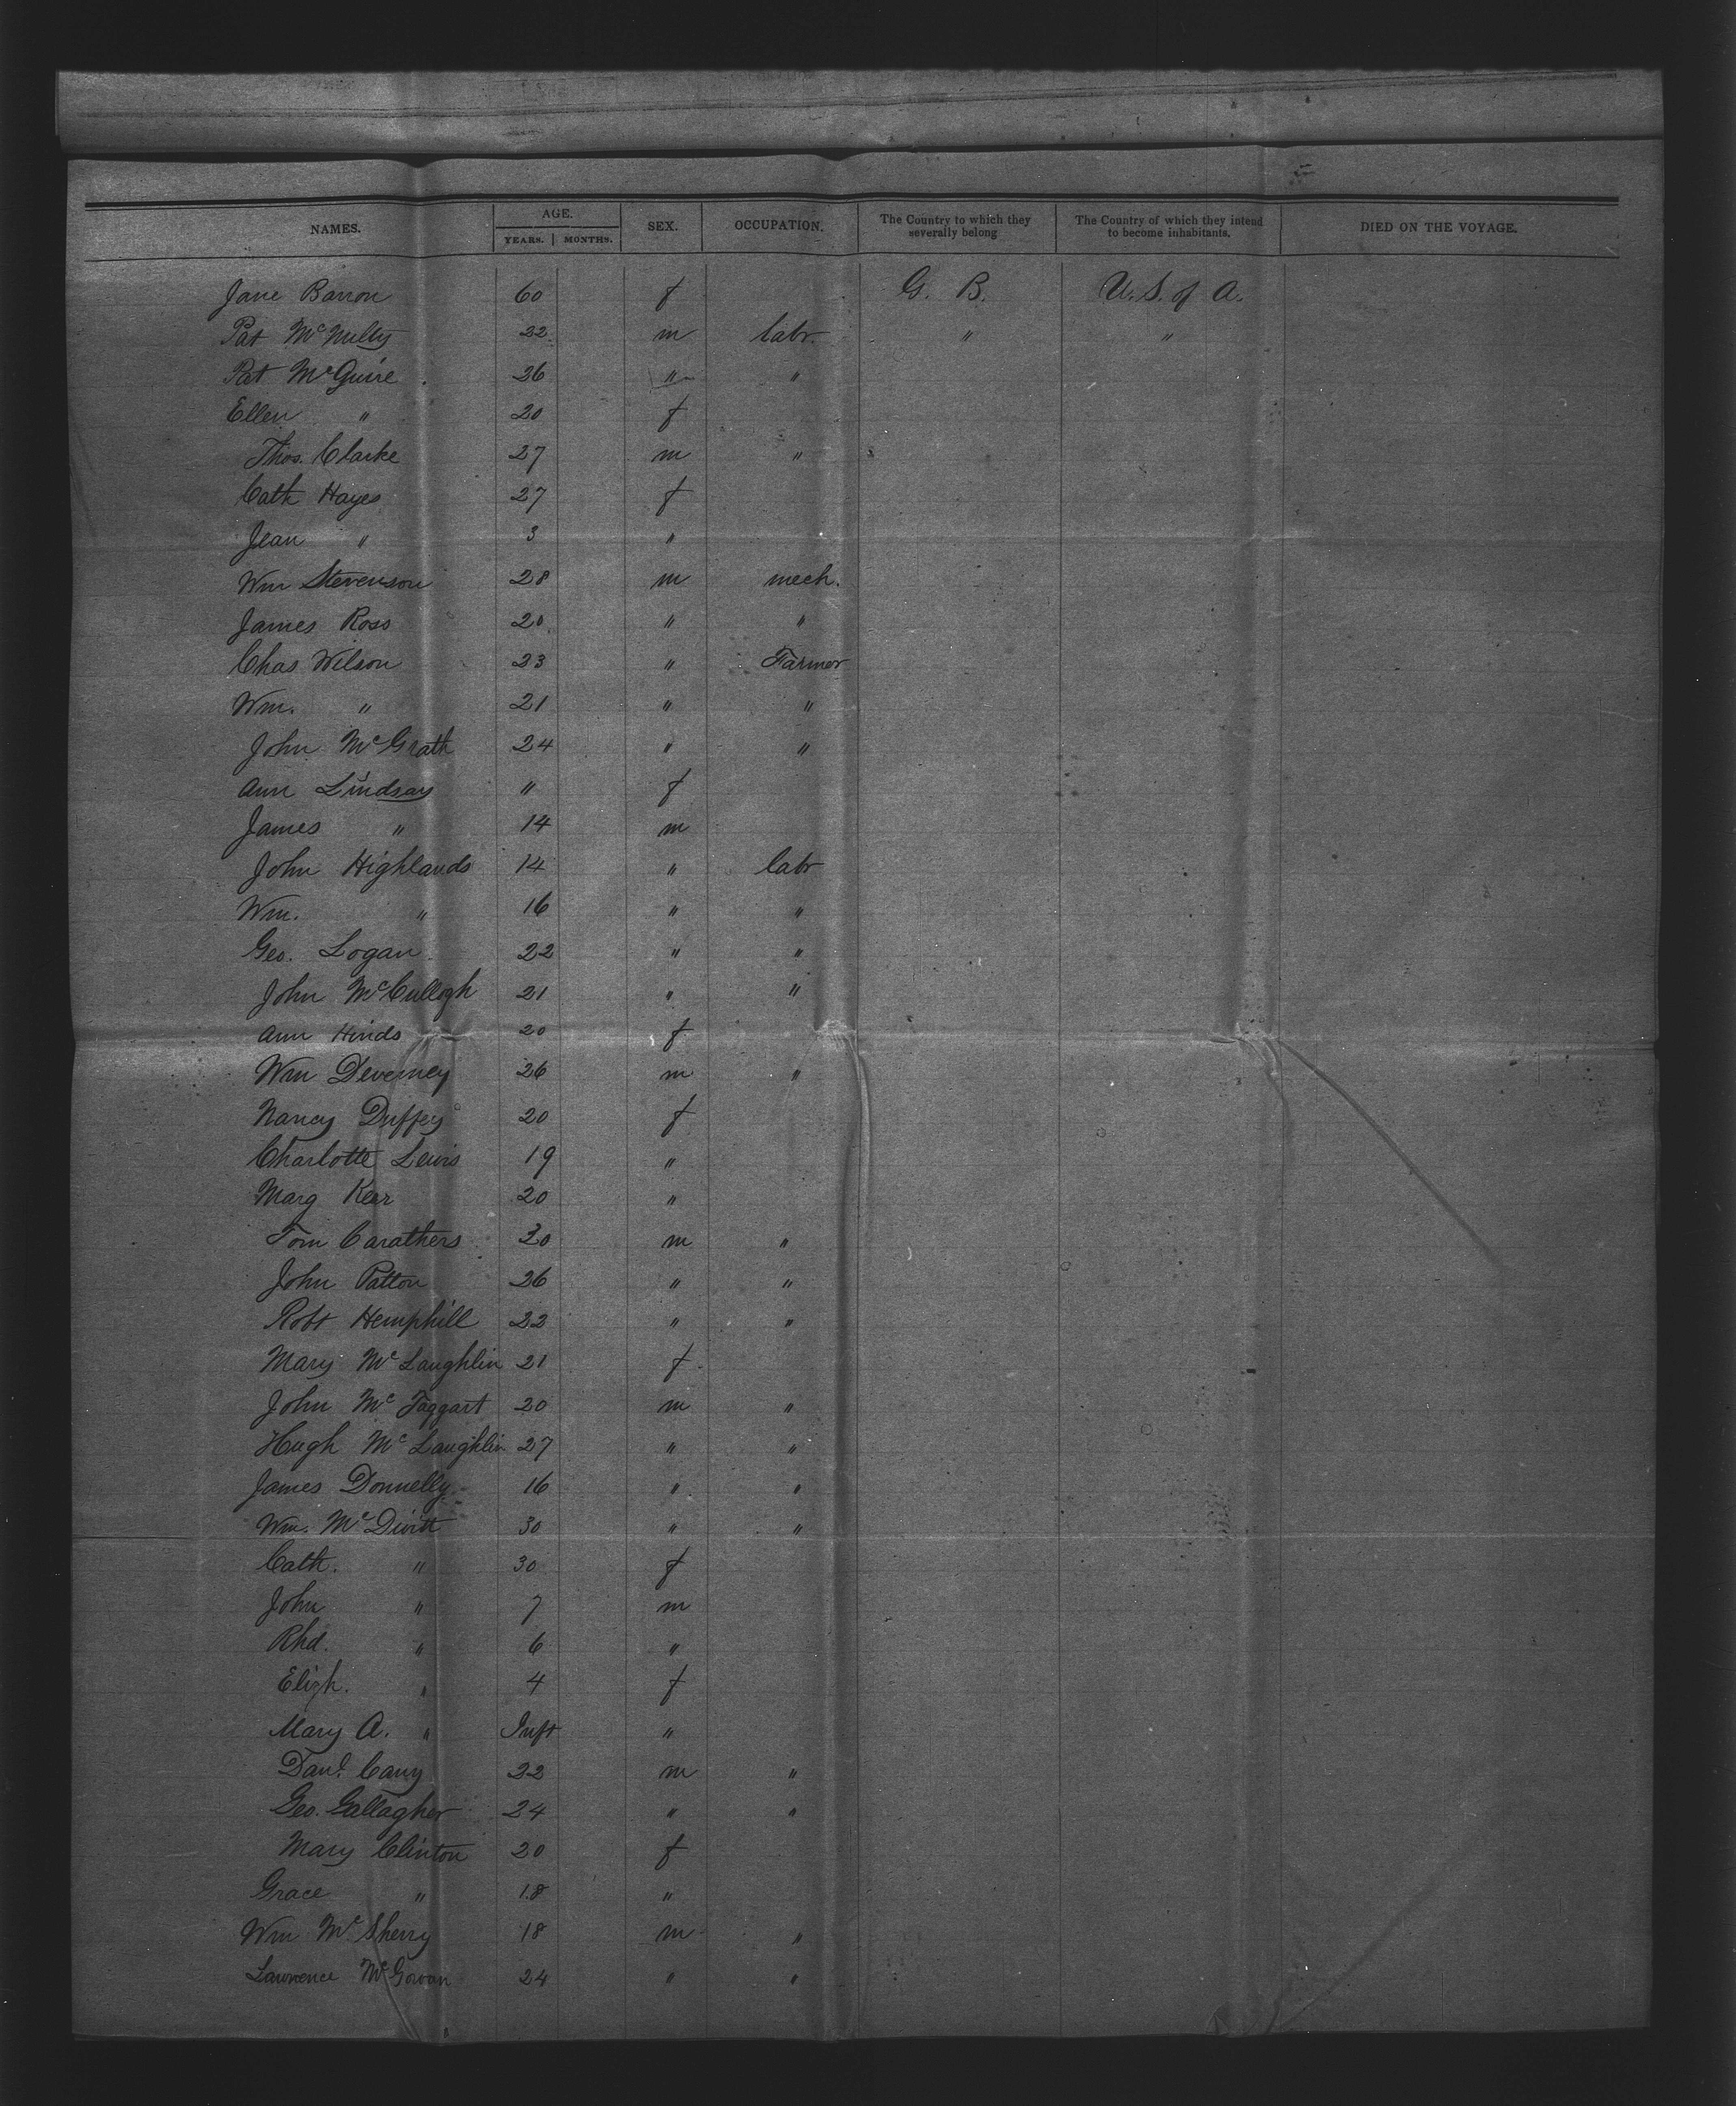 NAMES. AGE. YEARS. MONTHS. SEX. OCCUPATION. The Country to which they severally belong The Country of which they intend to become inhabitants. DIED ON THE VOYAGE.
Jane Barron 60 f G. B. U.S. of A.
Pat McNulty 22 m labr. " "
Pat McGuire 26 " "
Ellen " 20 f
Thos. Clarke 27 m "
Cath Hayes 27 f
Jean " 3 "
Wm Stevenson 28 m mech.
James Ross 20 " "
Chas Wilson 23 " Farmer
Wm. " 21 " "
John McGrath 24 " "
Ann Lindsay " f
James " 14 m
John Highlands 14 " labr
Wm. " 16 " "
Geo. Logan 22 " "
John McCullogh 21 " "
Ann Hinds 20 f
Wm Deverney 26 m "
Nancy Duffey 20 f
Charlotte Lewis 19 "
Marg Kerr 20 "
Tom Carathers 20 m "
John Patton 26 " "
Robt Hemphill 22 " "
Mary McLaughlin 21 f
John McTaggart 20 m "
Hugh McLaughlin 27 " "
James Donnelly 16 " "
Wm. McDivitt 30 " "
Cath. " 30 f
John " 7 m
Rhd. " 6 "
Elizh. " 4 f
Mary A. " Inft "
Danl. 22 m "
Geo. Gallagher 24 " "
Mary Clinton 20 f
Grace " 18 "
Wm McSherry 18 m "
Lawrence McGowan 24 " "